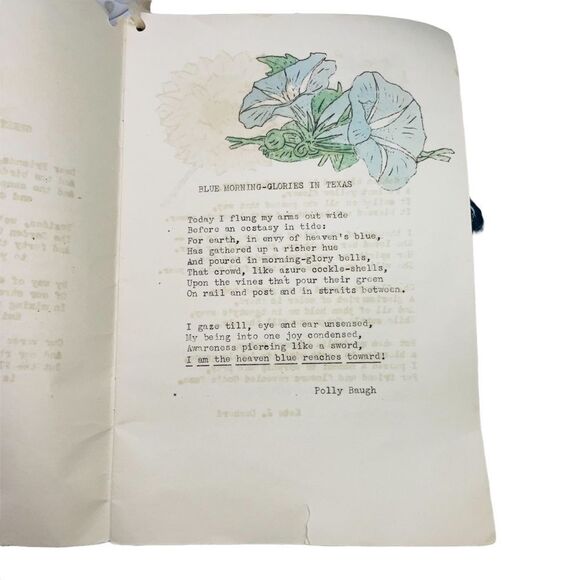 BLUE MORNING-GLORIES IN TEXAS
Today I flung my arms out wide
Before an ecstasy in tide:
For earth, in envy of heaven's blue,
Has gathered up a richer hue
And poured in morning-glory bells,
That crowd, like azure cockle-shells,
Upon the vines that pour their green
On rail and post and in straits between.
I gaze till, eye and ear unsensed,
My being into one joy condensed,
Awareness piercing like a sword,
I am the heaven blue reaches toward!
Polly Baugh